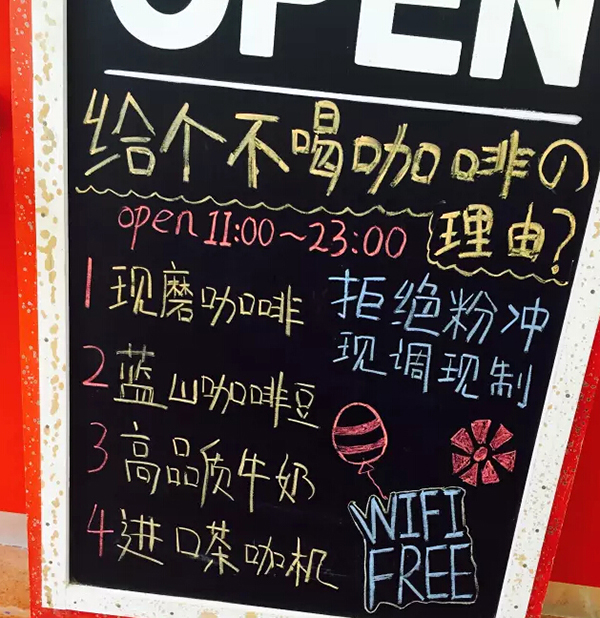 OPEN
给个不喝咖啡の
理由?
open 11:00~23:00
1 现磨咖啡
2 蓝山咖啡豆
3 高品质牛奶
4 进口茶咖机
拒绝粉冲
现调现制
WIFI
FREE